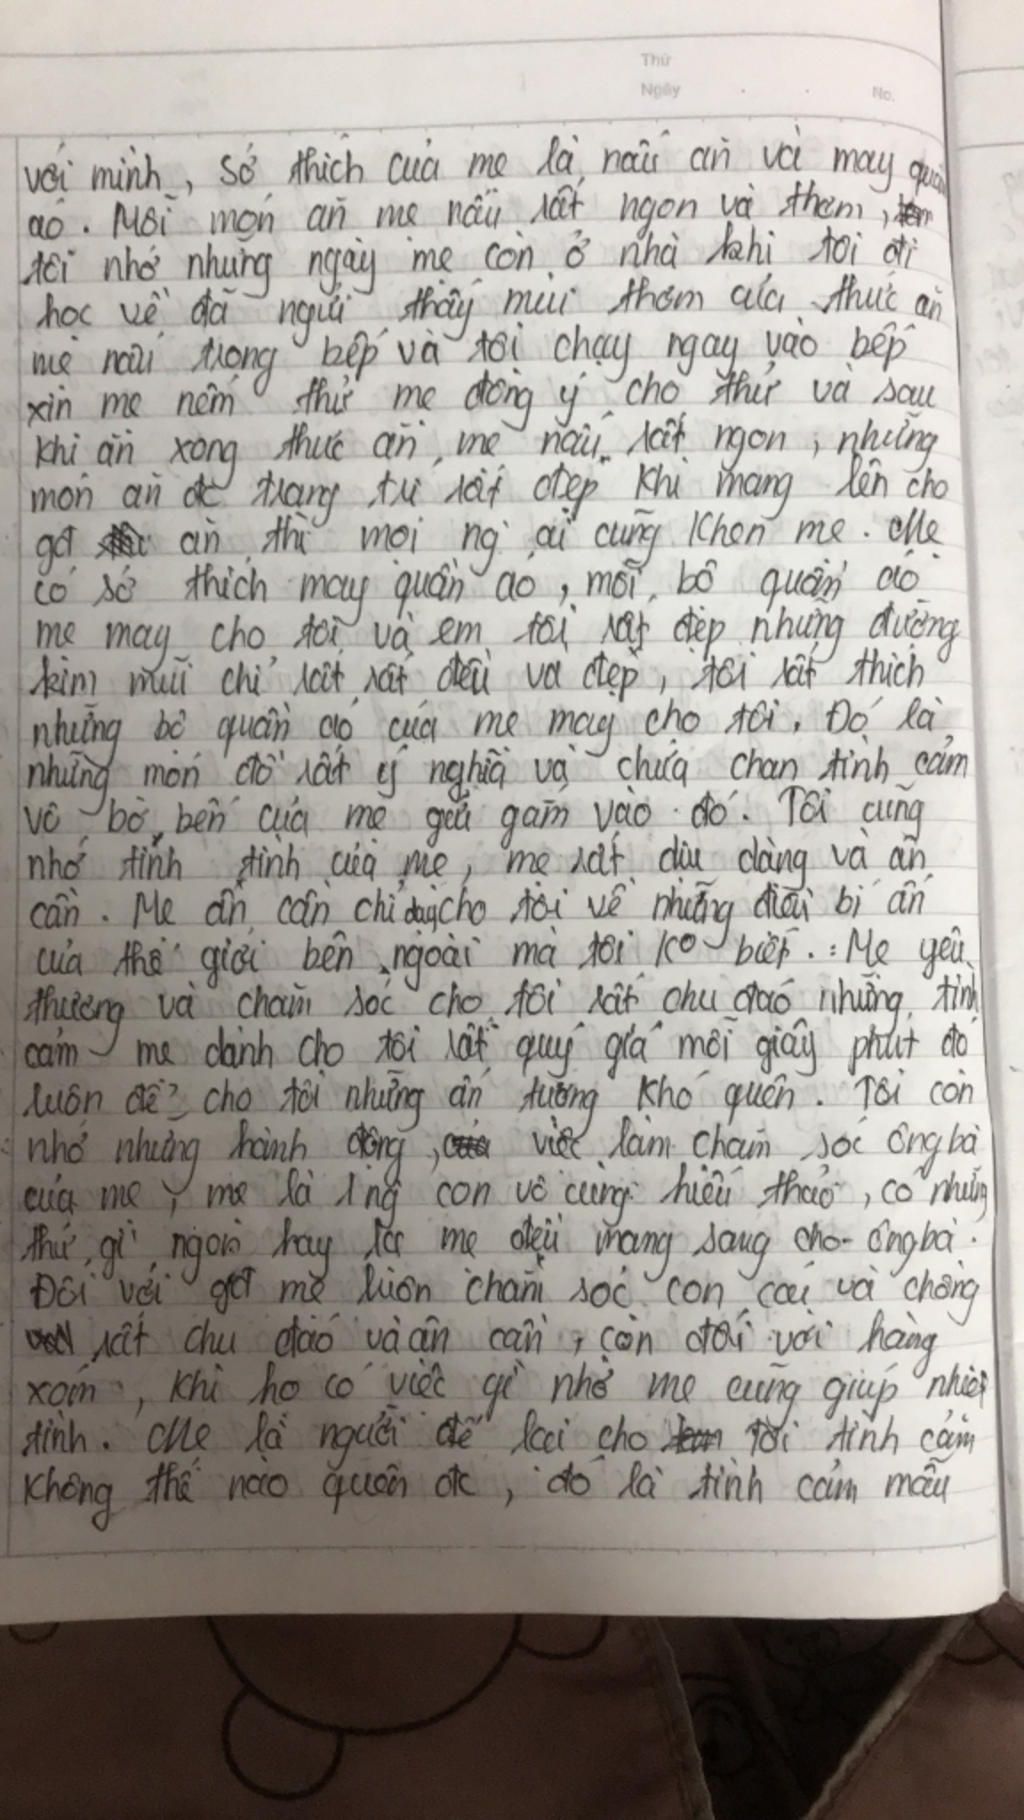 Thứ
Ngày
No.
với mình, sở thích của mẹ là nấu ăn và may quần
áo. Mỗi món ăn mẹ nấu rất ngon và thơm,
tôi nhớ những ngày mẹ còn ở nhà khi tôi đi
học về đã ngửi thấy mùi thơm của thức ăn
mẹ nấu trong bếp và tôi chạy ngay vào bếp
xin mẹ nếm thử mẹ đồng ý cho thử và sau
khi ăn xong thức ăn mẹ nấu rất ngon, những
món ăn đc trang trí rất đẹp khi mang lên cho
gđ ăn thì mọi ng ai cũng khen mẹ. Mẹ
có sở thích may quần áo, mỗi bộ quần áo
mẹ may cho tôi và em tôi rất đẹp những đường
kim mũi chỉ rất rất đều và đẹp, tôi rất thích
những bộ quần áo của mẹ may cho tôi. Đó là
những món đồ rất ý nghĩa và chứa chan tình cảm
vô bờ bến của mẹ gửi gắm vào đó. Tôi cũng
nhớ tính tình của mẹ, mẹ rất dịu dàng và ân
cần. Mẹ ân cần chỉ dạy cho tôi về những điều bí ẩn
của thế giới bên ngoài mà tôi ko biết. Mẹ yêu
thương và chăm sóc cho tôi rất chu đáo những tình
cảm mẹ dành cho tôi rất quý giá mỗi giây phút đó
luôn để cho tôi những ấn tượng khó quên. Tôi còn
nhớ những hành động, việc làm chăm sóc ông bà
của mẹ, mẹ là 1 ng con vô cùng hiếu thảo, có những
thứ gì ngon hay lạ mẹ đều mang sang cho ông bà.
Đối với gđ mẹ luôn chăm sóc con cái và chồng
rất chu đáo và ân cần, còn đối với hàng
xóm, khi họ có việc gì nhờ mẹ cũng giúp nhiệt
tình. Mẹ là người để lại cho tôi tình cảm
không thể nào quên đc, đó là tình cảm mẫu